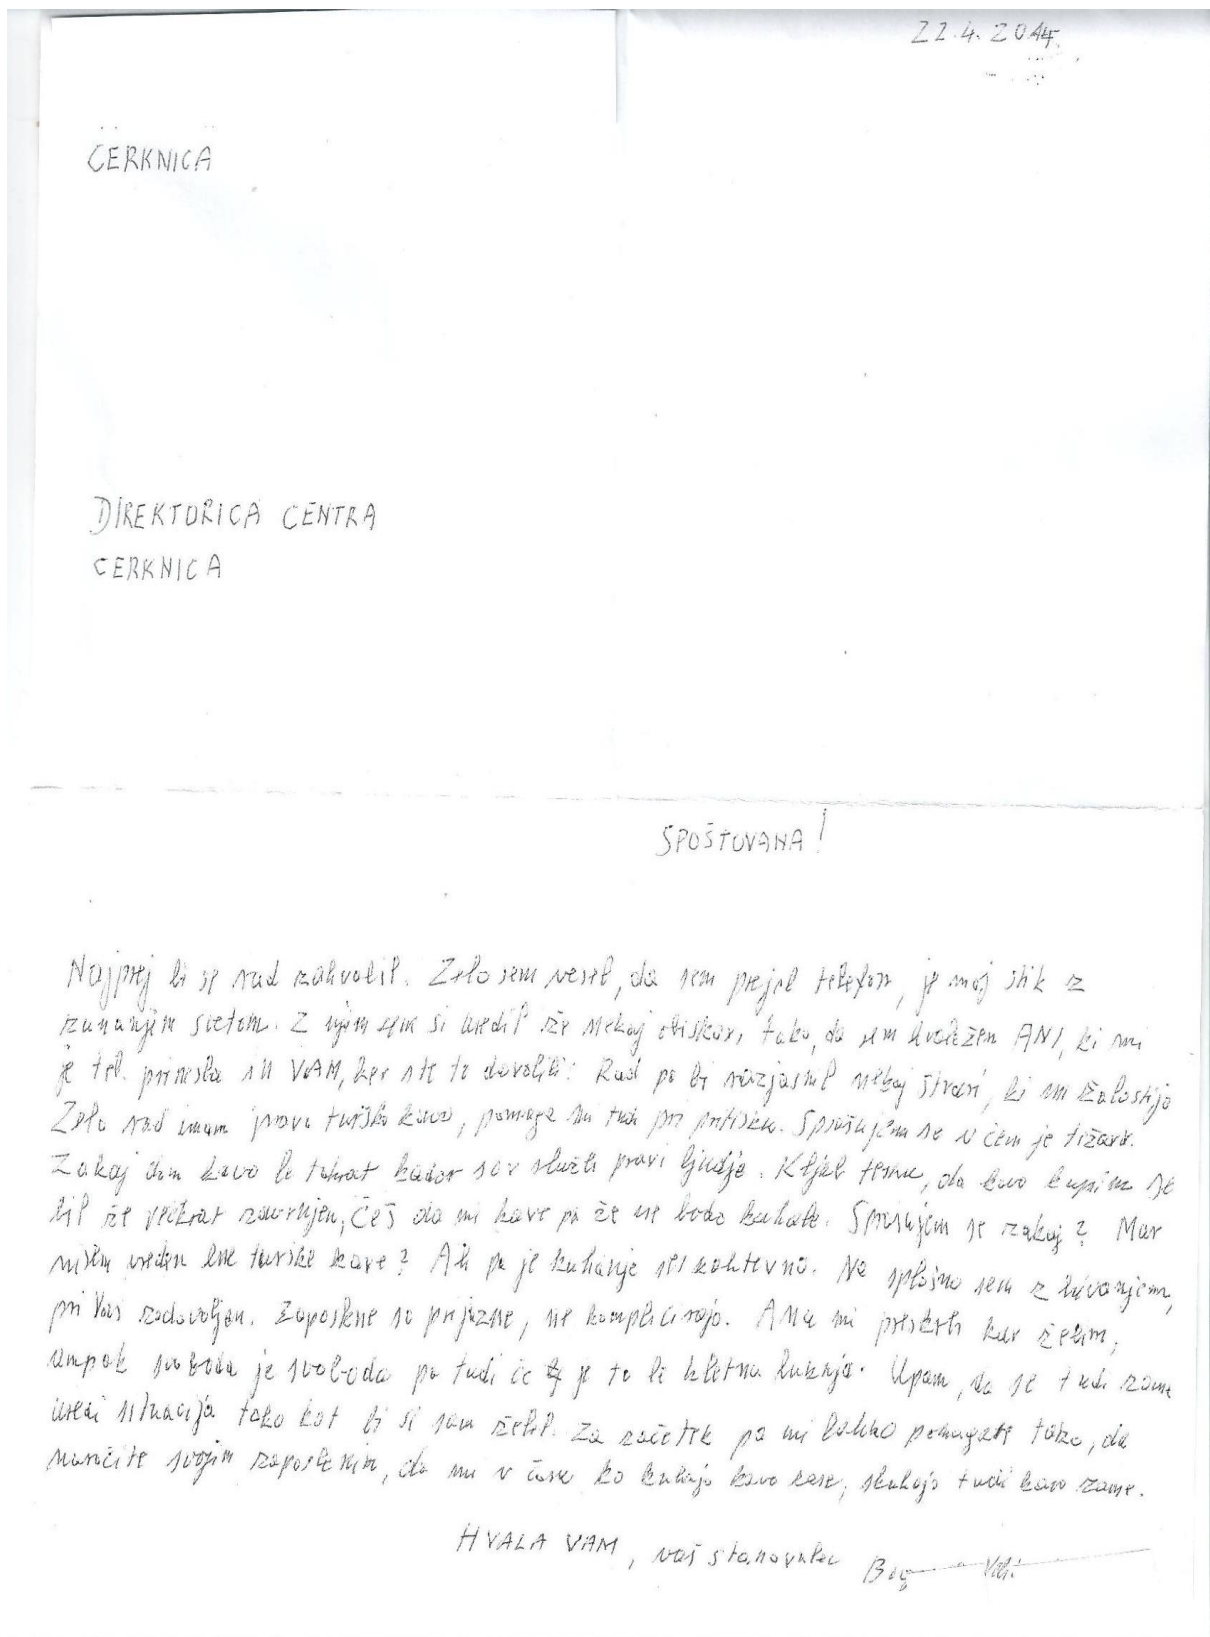 22.4.2014.
CERKNICA
DIREKTORICA CENTRA
CERKNICA
SPOŠTOVANA!
Najprej bi se rad zahvalil. Zelo sem vesel, da sem prejel telefon, je moj stik z
zunanjim svetom. Z njim sem si uredil že nekaj obiskov, tako, da sem hvaležen ANI, ki mi
je tel. prinesla in VAM, ker ste to dovolili. Rad pa bi razjasnil nekaj stvari, ki me žalostijo
Zelo rad imam pravo turško kavo, pomaga mi tudi pri pritisku. Sprašujem se v čem je težava.
Zakaj dom kavo le takrat kadar so v službi pravi ljudje. Kljub temu, da kavo kupim sem
bil že večkrat zavrnjen, češ da mi kave pa že ne bodo kuhale. Sprašujem se zakaj? Mar
nisem vreden ene turške kave? Ali pa je kuhanje neskahtevno. Na splošno sem z bivanjem,
pri Vas zadovoljen. Zaposlene so prijazne, ne komplicirajo. Ana mi preskrbi kar želim,
ampak svoboda je svoboda pa tudi če je to le kletna luknja. Upam, da se tudi zame
uredi situacija tako kot bi si sam želel. Za začetek pa mi lahko pomagate tako, da
naročite svojim zaposlenim, da mi v času ko kuhajo kavo zase, skuhajo tudi kavo zame.
HVALA VAM, vaš stanovalec